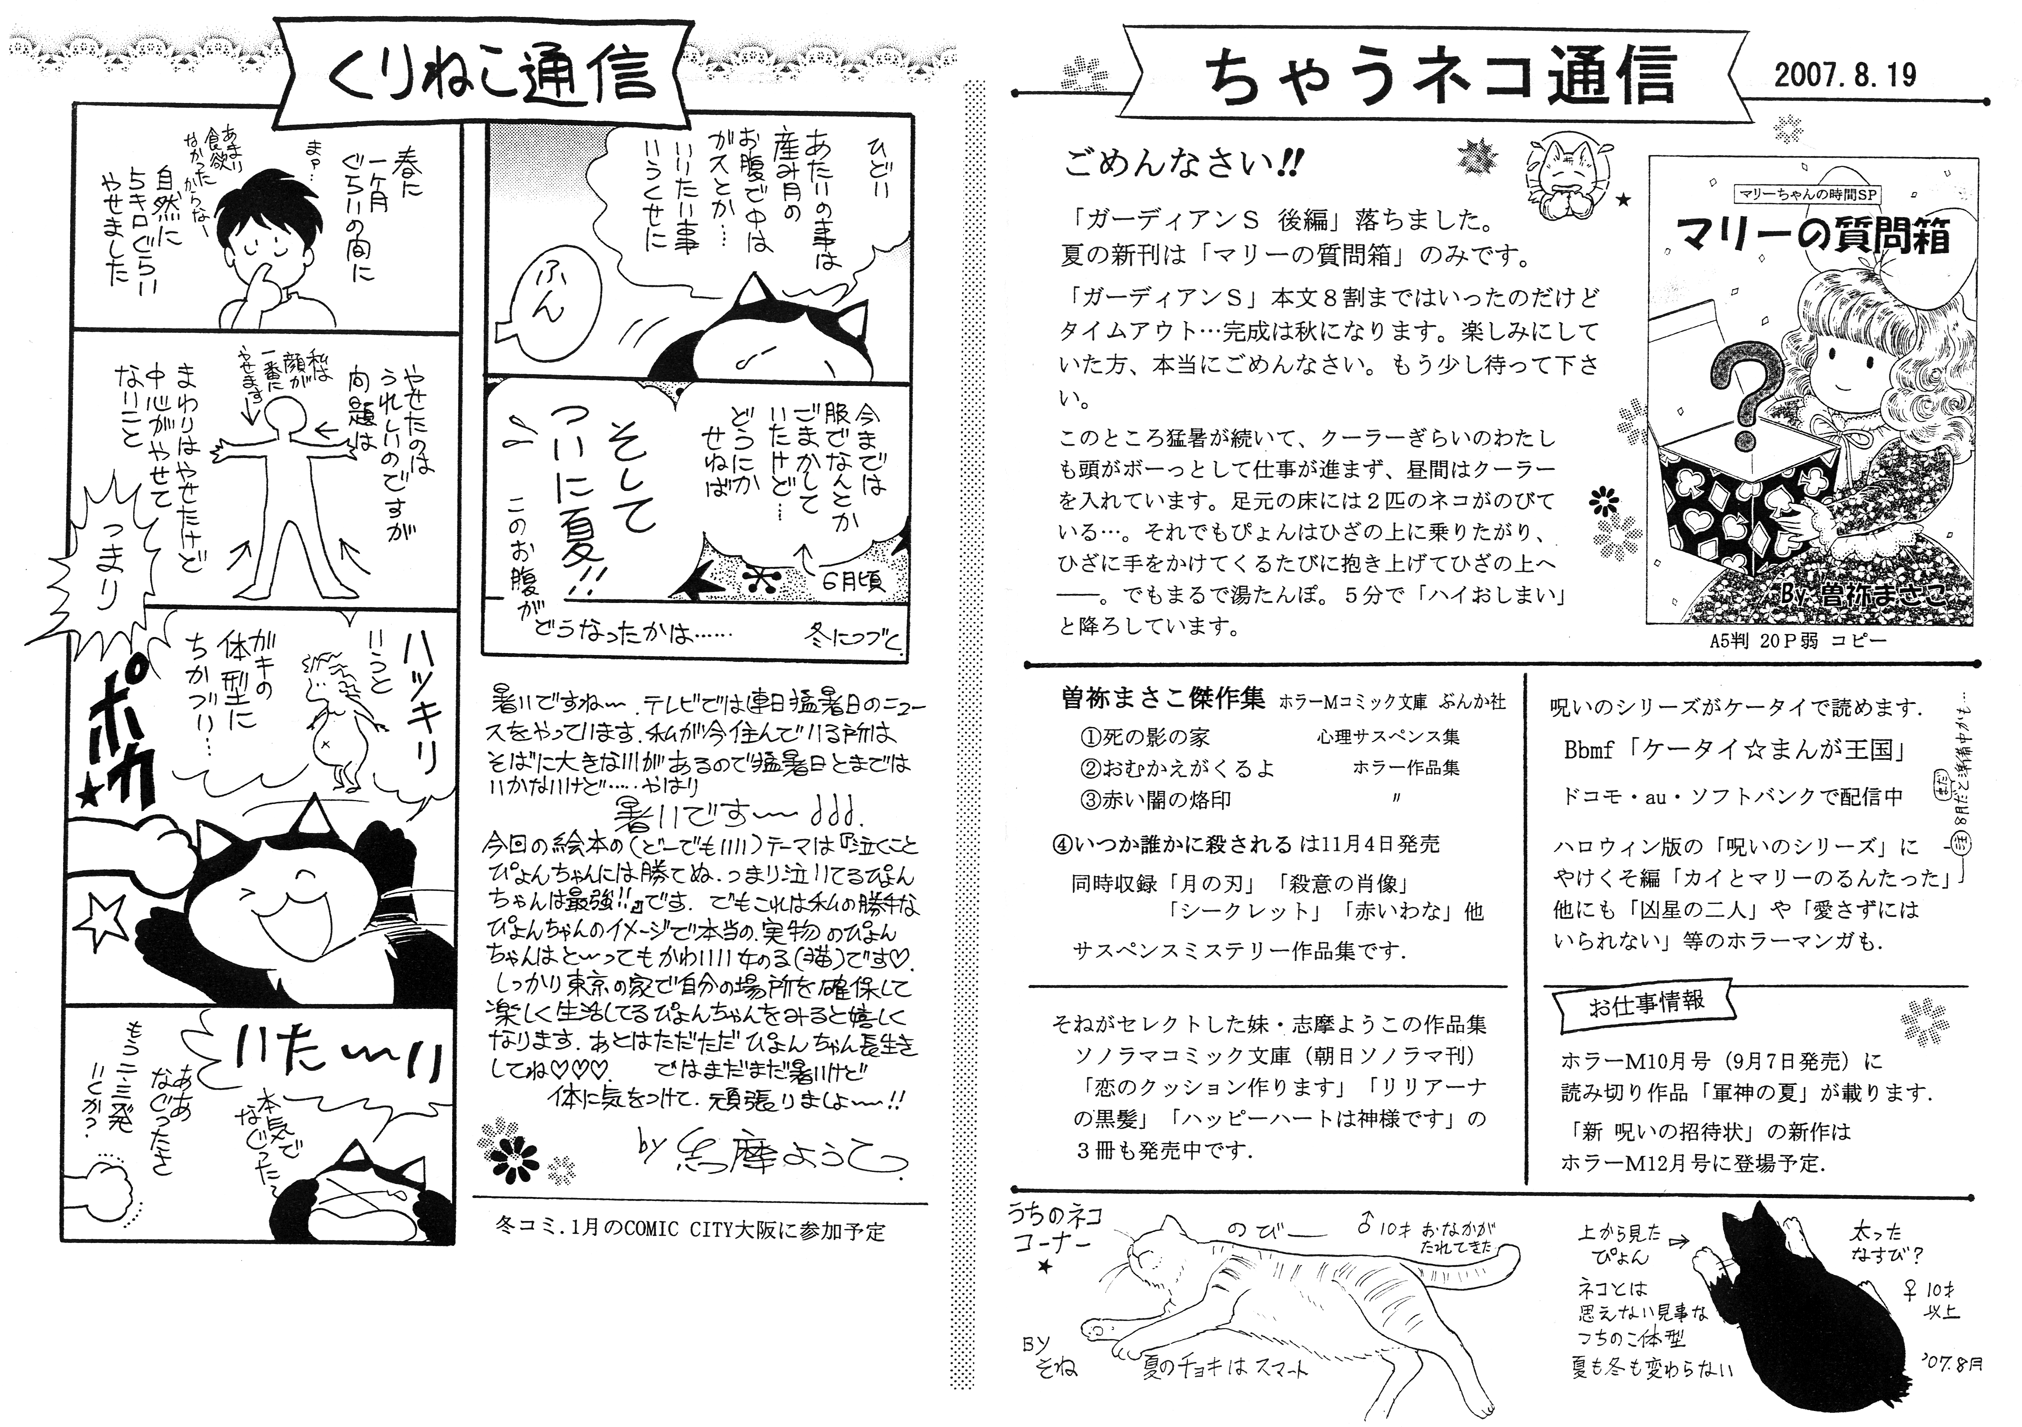 ちゃうネコ通信
2007.8.19
ごめんなさい!!
「ガーディアンＳ 後編」落ちました。
夏の新刊は「マリーの質問箱」のみです。
「ガーディアンＳ」本文８割まではいったのだけど
タイムアウト…完成は秋になります。楽しみにして
いた方、本当にごめんなさい。もう少し待って下さ
い。
このところ猛暑が続いて、クーラーぎらいのわたし
も頭がボーっとして仕事が進まず、昼間はクーラー
を入れています。足元の床には２匹のネコがのびて
いる…。それでもぴょんはひざの上に乗りたがり、
ひざに手をかけてくるたびに抱き上げてひざの上へ
――。でもまるで湯たんぽ。５分で「ハイおしまい」
と降ろしています。
マリーちゃんの時間SP
マリーの質問箱
?
By 曽祢まさこ
A5判 20Ｐ弱 コピー
曽祢まさこ傑作集 ホラーMコミック文庫 ぶんか社
①死の影の家 心理サスペンス集
②おむかえがくるよ ホラー作品集
③赤い闇の烙印 〃
④いつか誰かに殺される は11月4日発売
同時収録「月の刃」「殺意の肖像」
「シークレット」「赤いわな」他
サスペンスミステリー作品集です.
そねがセレクトした妹・志摩ようこの作品集
ソノラマコミック文庫（朝日ソノラマ刊）
「恋のクッション作ります」「リリアーナ
の黒髪」「ハッピーハートは神様です」の
３冊も発売中です.
呪いのシリーズがケータイで読めます.
Bbmf「ケータイ☆まんが王国」
ドコモ・au・ソフトバンクで配信中
ハロウィン版の「呪いのシリーズ」に
やけくそ編「カイとマリーのるんたった」
他にも「凶星の二人」や「愛さずには
いられない」等のホラーマンガも.
㊟8月だと準備中かも…
まだ
お仕事情報
ホラーM10月号（9月7日発売）に
読み切り作品「軍神の夏」が載ります.
「新 呪いの招待状」の新作は
ホラーM12月号に登場予定.
うちのネコ
コーナー
★
BY
そね
のびー
♂10才 おなかが
たれてきた
夏のチョキは スマート
上から見た
ぴょん
ネコとは
思えない見事な
つちのこ体型
夏も冬も変わらない
太った
なすび？
♀10才
以上
'07.8月
くりねこ通信
ひどい
あたいの事は
産み月の
お腹で中は
ガスとか…
いいたい事
いうくせに
ふん
今までは
服でなんとか
ごまかして
いたけど…
どうにか
せねば
6月頃
そして
ついに夏!!
このお腹が
どうなったかは……
冬につづく.
春に
一ヶ月
ぐらいの間に
まァ…
あまり
食欲
なかったからなー
自然に
5キロぐらい
やせました
やせたのは
うれしいのですが
問題は
私は
顔が
一番に
やせます
まわりはやせたけど
中心がやせて
ないこと
つまり
ハッキリ
いうと
ガキの
体型に
ちかづい…
ポカ★
いた〜い
本気で
なぐった
ああ
なぐったさ
もう二・三発
いくか?
暑いですね〜.テレビでは連日猛暑日のニュー
スをやっています.私が今住んでいる所は
そばに大きな川があるので猛暑日とまでは
いかないけど……やはり
暑いです〜
今回の絵本の(どーでもいい)テーマは『泣くこと
ぴょんちゃんには勝てぬ.つまり泣いてるぴょん
ちゃんは最強!!』です. でもこれは私の勝手な
ぴょんちゃんのイメージで本当の.実物のぴょん
ちゃんはと〜ってもかわいい女のる(猫)です♡.
しっかり東京の家で自分の場所を確保して
楽しく生活してるぴょんちゃんをみると嬉しく
なります.あとはただただぴょんちゃん長生き
してね♡♡♡. ではまだまだ暑いけど
体に気をつけて.頑張りましょ〜!!
by 志摩ようこ.
冬コミ.1月のCOMIC CITY大阪に参加予定